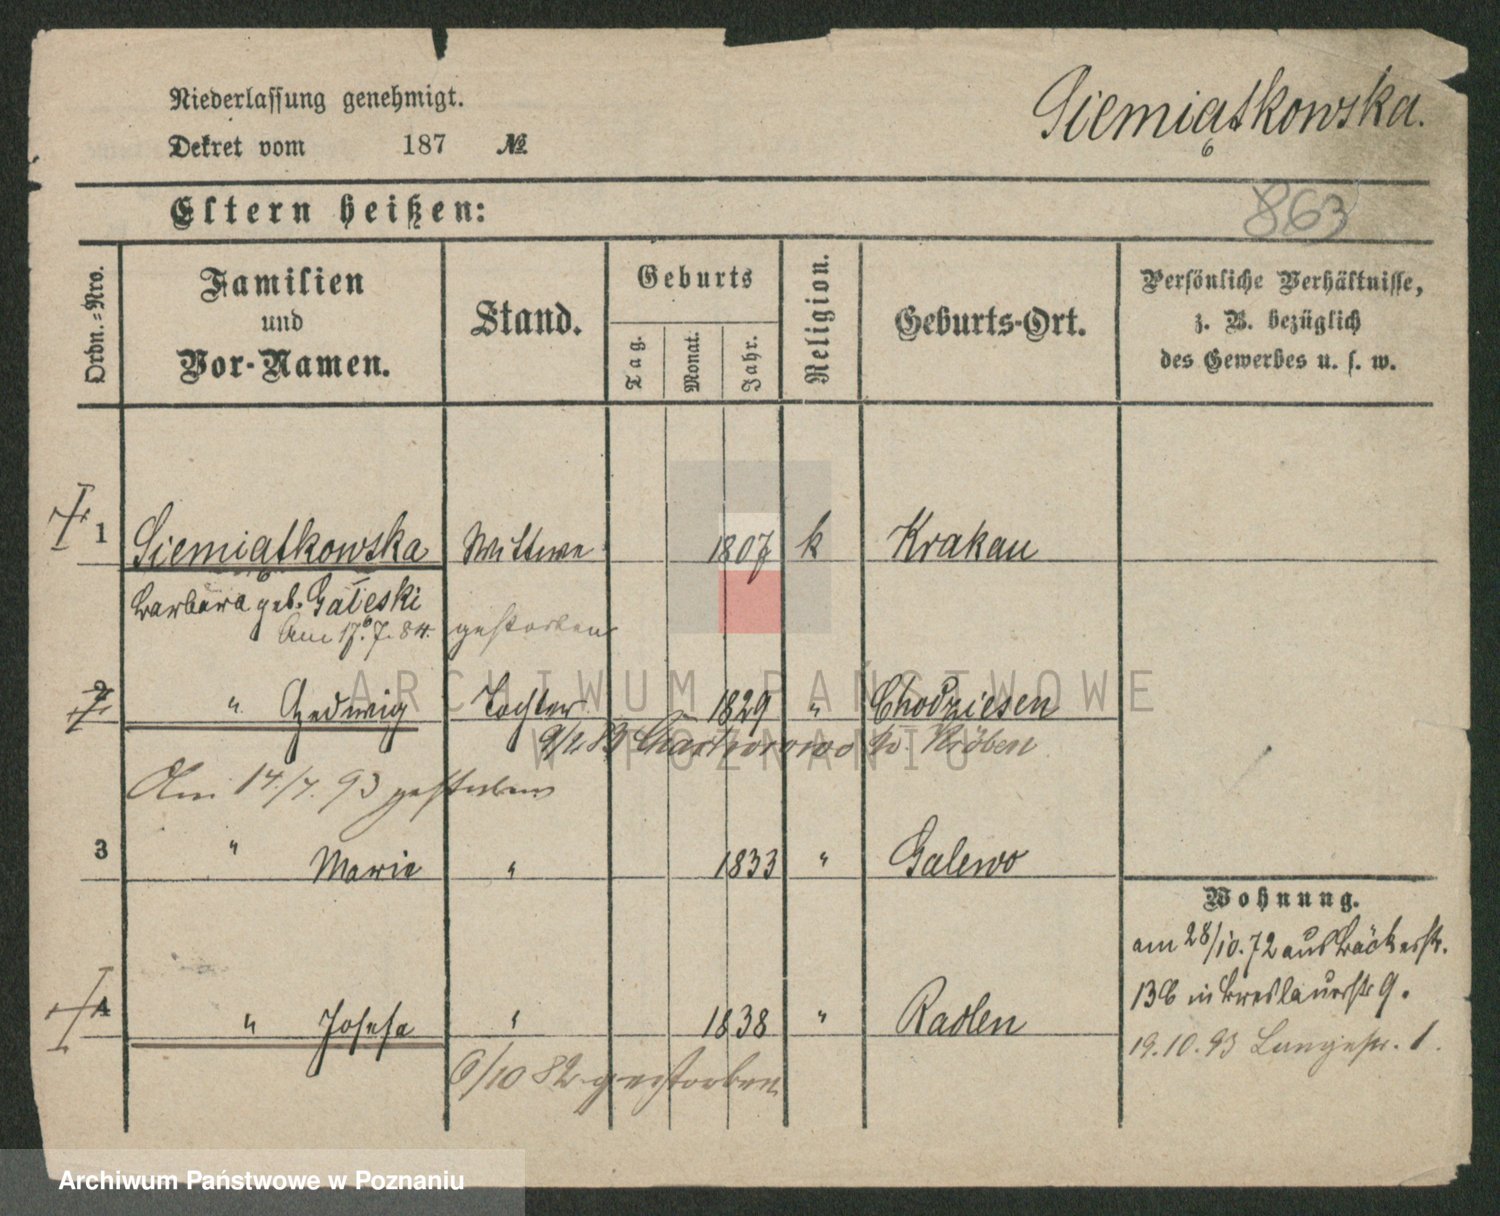 Niederlassung genehmigt.
Dekret vom 187 №
Siemiątkowska.
863
Eltern heißen:
Ordn.=Nro.
Familien
und
Vor-Namen.
Stand.
Geburts
Tag.
Monat.
Jahr.
Religion.
Geburts-Ort.
Persönliche Verhältnisse,
z. B. bezüglich
des Gewerbes u. s. w.
1 Siemiątkowska Wittwe 1807 k Krakau
Barbara geb. Gałeski
Am 17.7.84. gestorben
2 " Hedwig Tochter 1829 " Chodziesen
9/1 83 b. Kröben
Am 14./7. 93 gestorben
3 " Marie " 1833 " Galewo
Wohnung.
am 28/10.72 aus Bäckerstr.
13b in Breslauerstr 9.
4 " Josefa " 1838 " Radlen
19.10.93 Langestr. 1.
6/10 82 gestorben
ARCHIWUM PAŃSTWOWE
W POZNANIU
Archiwum Państwowe w Poznaniu